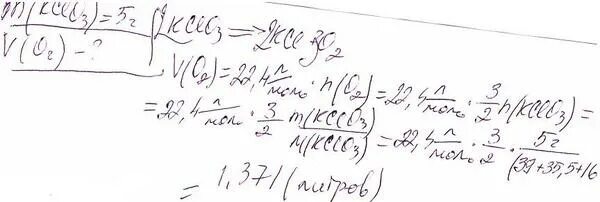 m(KClO₃)=5г
V(O₂)-?
2KClO₃=2KCl 3O₂
V(O₂)=22,4 л/моль · n(O₂)=22,4 л/моль · 3/2 n(KClO₃)=
=22,4 л/моль · 3/2 m(KClO₃)/M(KClO₃)=22,4 л/моль · 3/2 · 5г/(39+35,5+16
=1,371(литров)